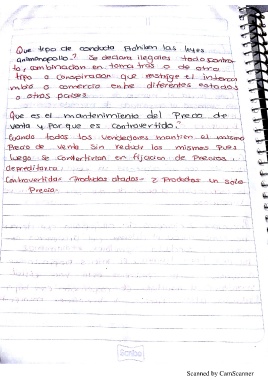 Que tipo de conducta Prohiben las leyes
antimonopolio? Se declara ilegales todo contra-
to, combinacion en forma tras o de otro
tipo o conspiracion que restrige el interca
mbio o comercio entre diferentes estados
o otros paises
Que es el mantenimiento del Precio de
venta y Por que es controvertido?
Cuando todos los vendedores mantien el mismo
Precio de venta Sin reducir los mismos Pues
luego se convertirian en fijacion de Precios.
depreditarra
Controvertidas Productos atados- 2 Productos un solo
Precio.
Scribe
Scanned by CamScanner